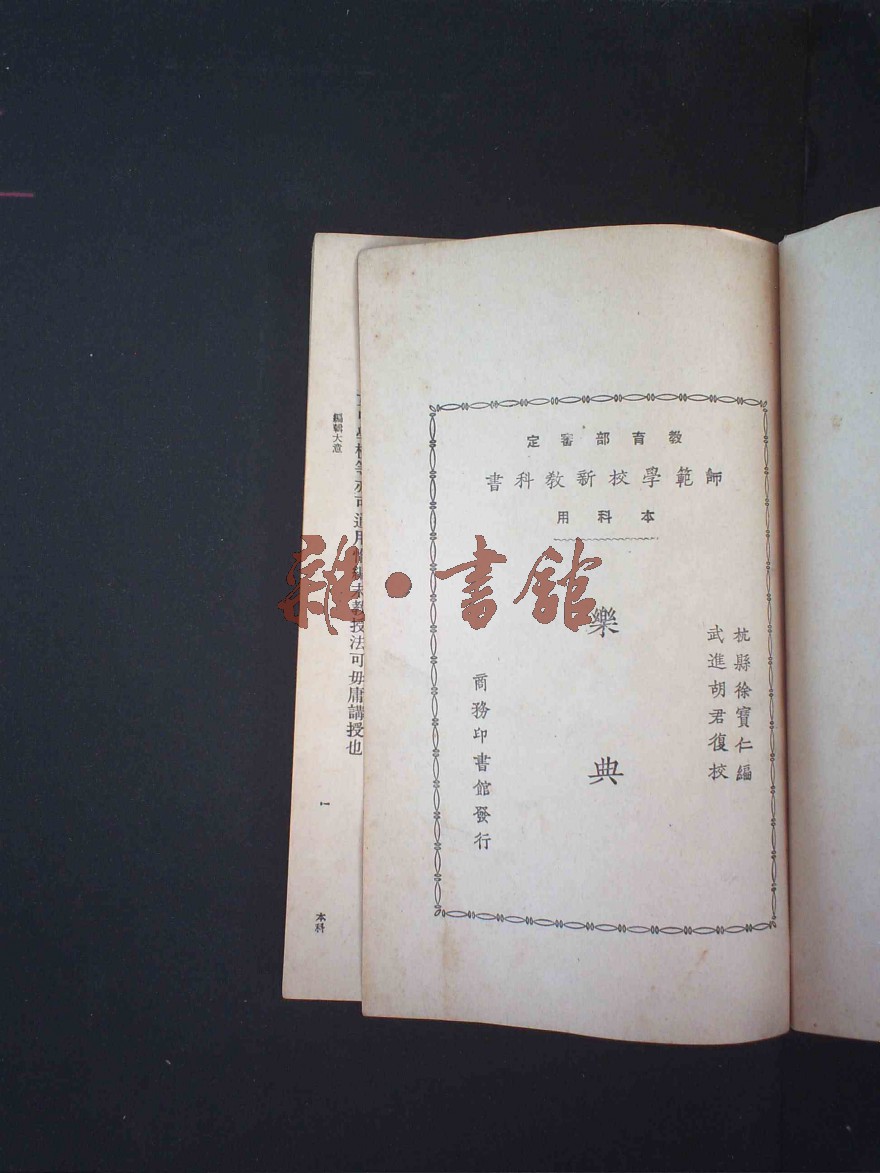 教育部審定
師範學校新教科書
本科用
杭縣徐寶仁編
武進胡君復校
樂典
商務印書館發行
雜·書館
編輯大意
學校等亦可通用
教授法可毋庸講授也
一
本科